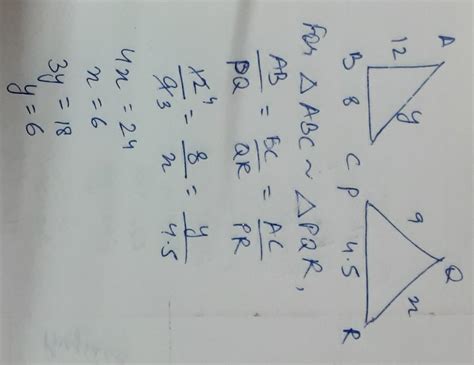 A
12
y
B
8
C
Q
9
x
P
4.5
R
for △ABC ~ △PQR,
AB/PQ = BC/QR = AC/PR
12 4/9 3 = 8/x = y/4.5
4x = 24
x = 6
3y = 18
y = 6